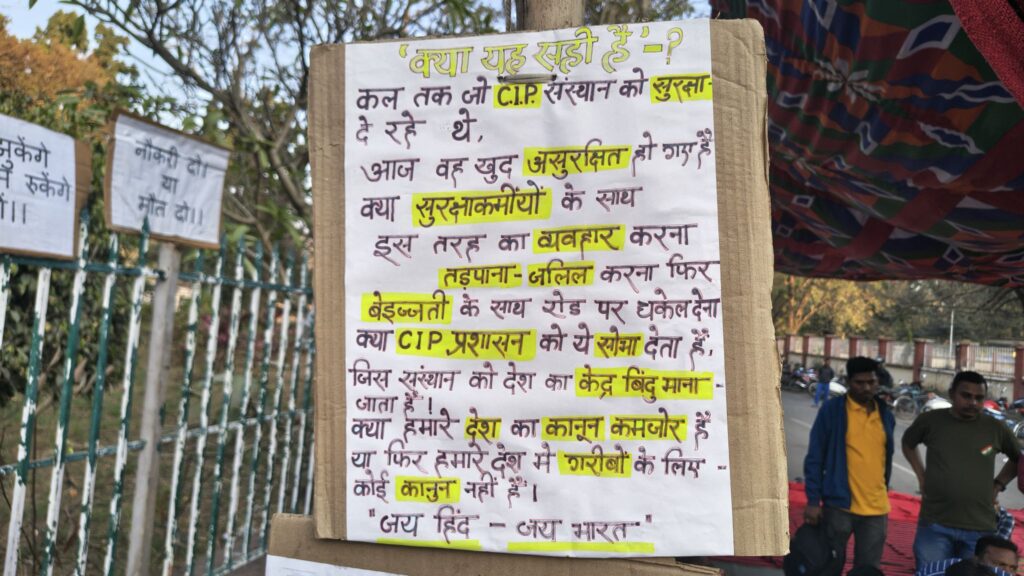 झुकेंगे
रुकेंगे
नौकरी दो।
या
मौत दो।।
'क्या यह सही है' -?
कल तक जो C.I.P. संस्थान को सुरक्षा-
दे रहे थे,
आज वह खुद असुरक्षित हो गए हैं
क्या सुरक्षाकर्मीयों के साथ
इस तरह का व्यवहार करना
तड़पाना-जलिल करना फिर
बेइज्जती के साथ रोड पर धकेल देना
क्या C.I.P. प्रशासन को ये सोभा देता है,
जिस संस्थान को देश का केंद्र बिंदु माना -
जाता है!
क्या हमारे देश का कानून कमजोर है
या फिर हमारे देश में गरीबों के लिए -
कोई कानुन नहीं है।
"जय हिंद - जय भारत"